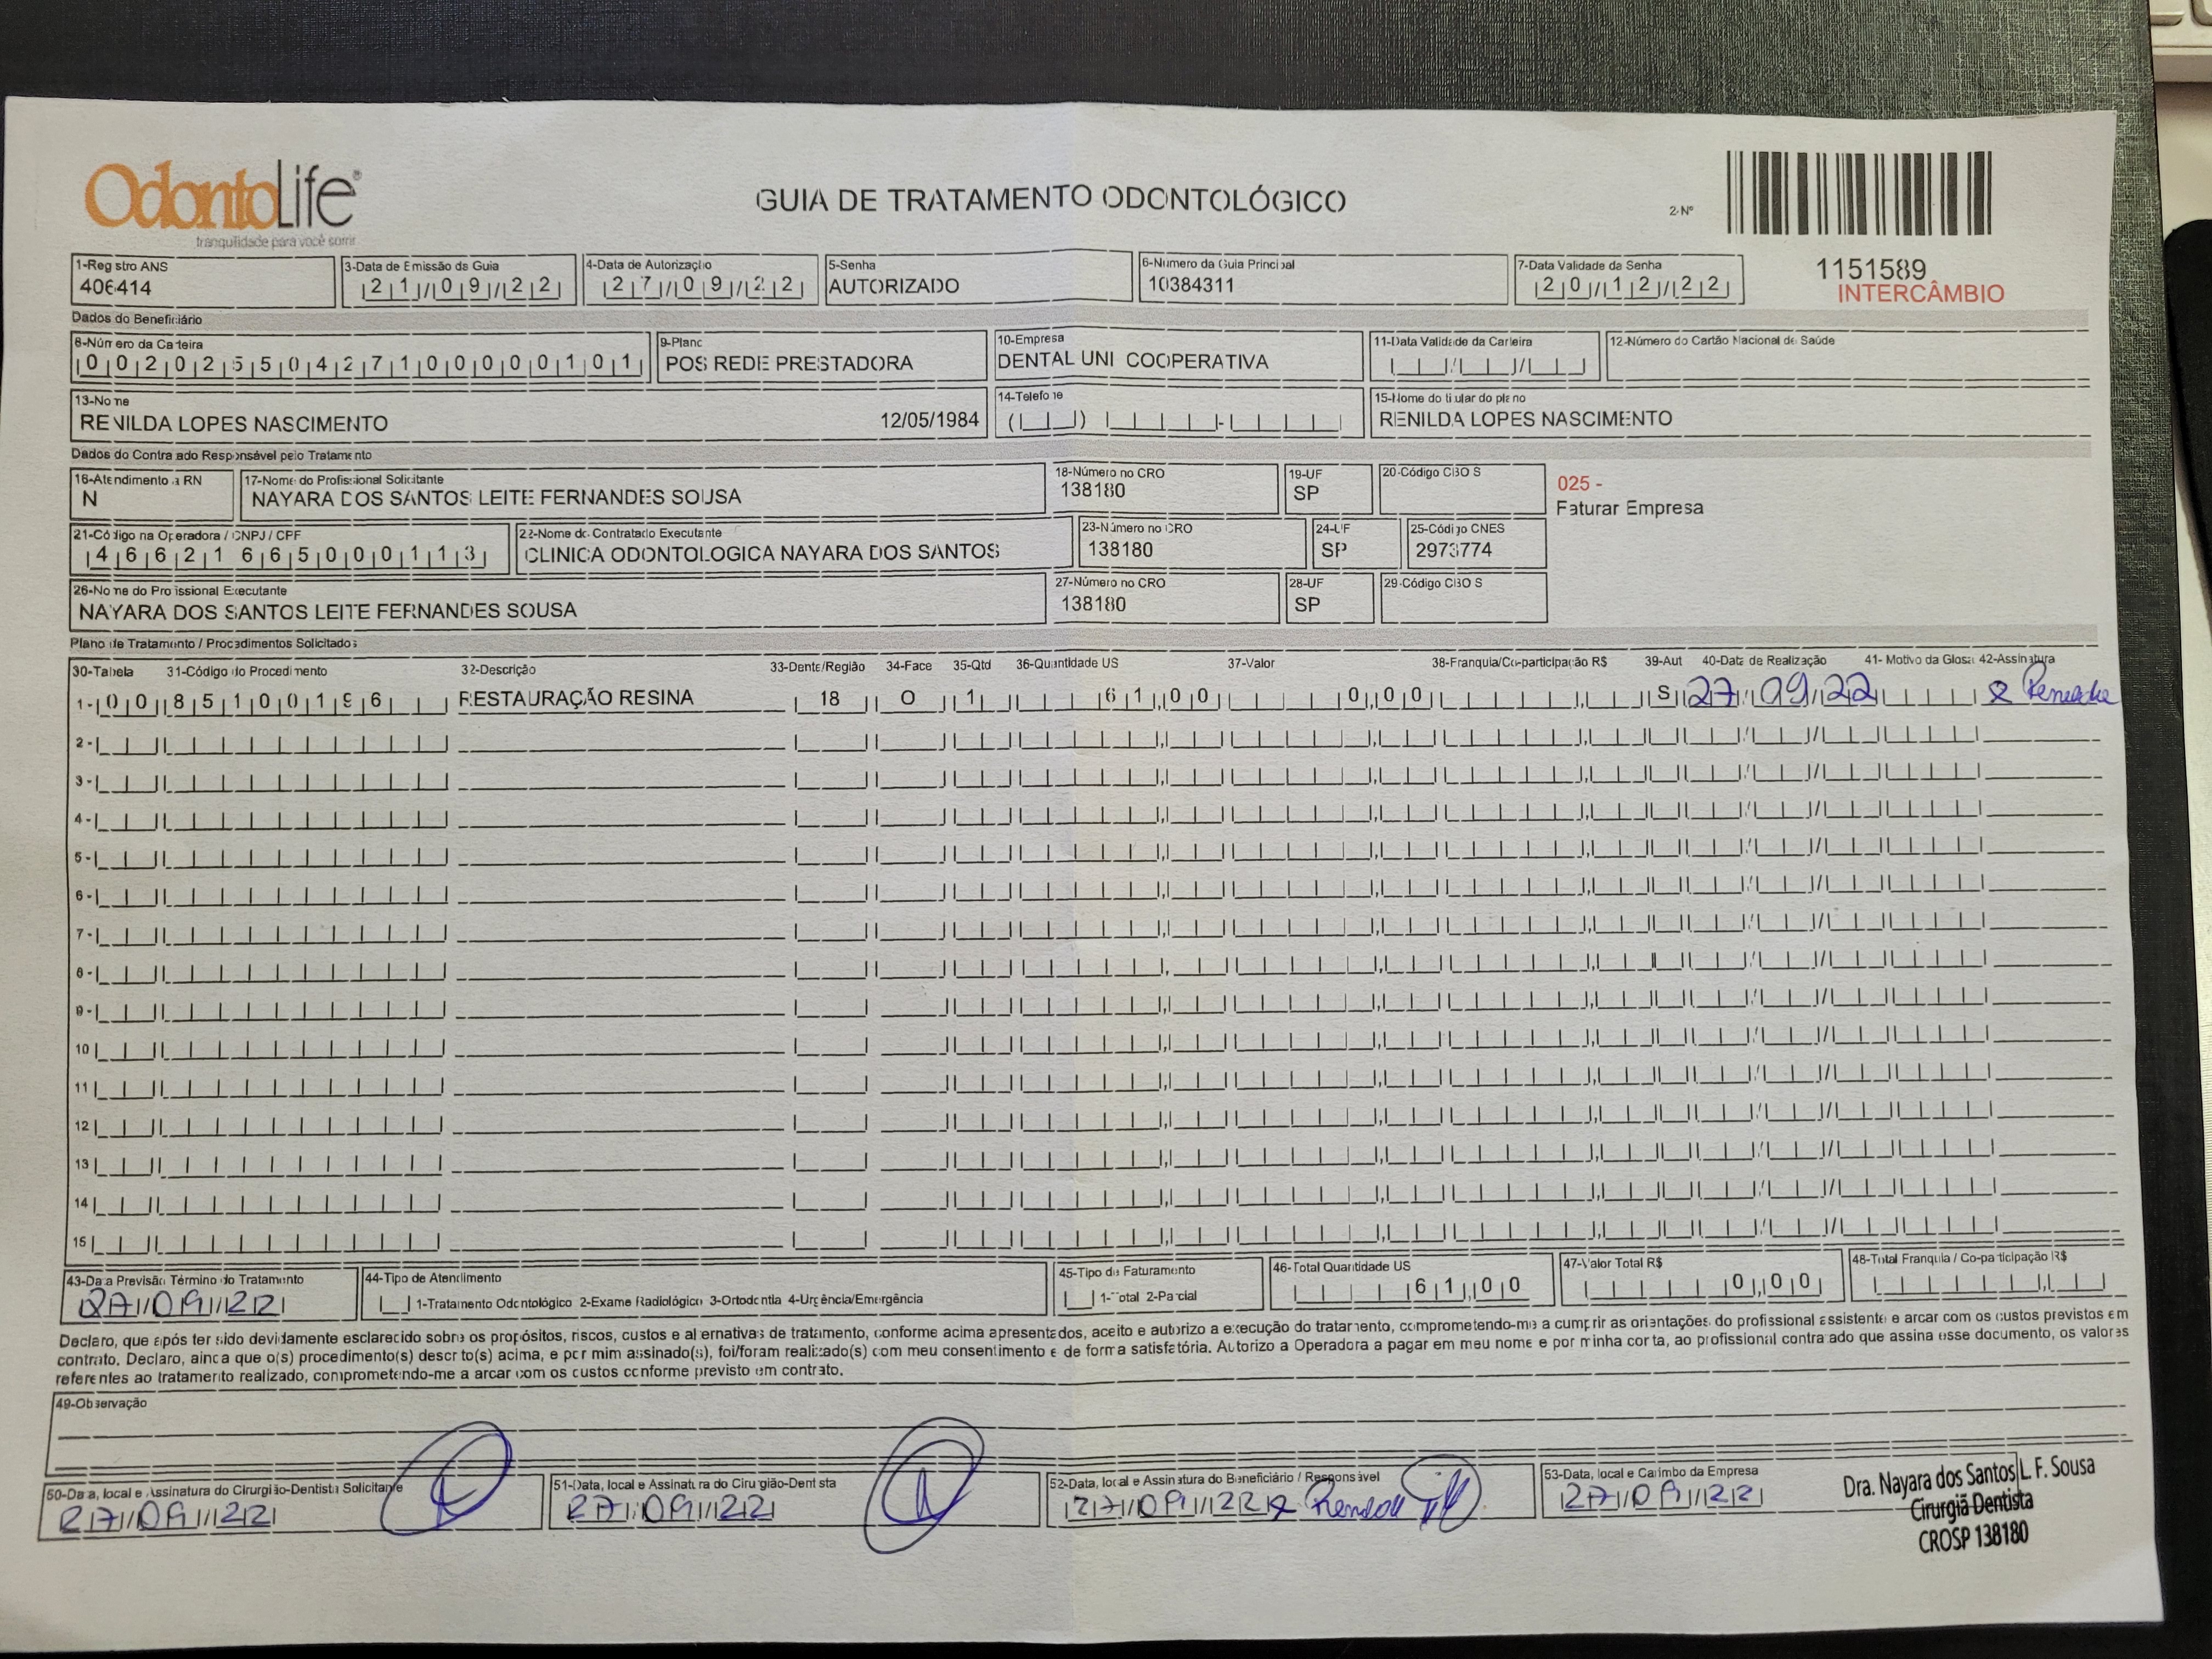 OdontoLife®
tranquilidade para você sorrir
GUIA DE TRATAMENTO ODONTOLÓGICO
2-Nº
1151589
INTERCÂMBIO
1-Registro ANS
406414
3-Data de Emissão da Guia
21/09/22
4-Data de Autorização
27/09/22
5-Senha
AUTORIZADO
6-Número da Guia Principal
10384311
7-Data Validade da Senha
20/12/22
Dados do Beneficiário
8-Número da Carteira
00202550427100000101
9-Plano
POS REDE PRESTADORA
10-Empresa
DENTAL UNI COOPERATIVA
11-Data Validade da Carteira
12-Número do Cartão Nacional de Saúde
13-Nome
RENILDA LOPES NASCIMENTO 12/05/1984
14-Telefone
15-Nome do titular do plano
RENILDA LOPES NASCIMENTO
Dados do Contratado Responsável pelo Tratamento
16-Atendimento a RN
N
17-Nome do Profissional Solicitante
NAYARA DOS SANTOS LEITE FERNANDES SOUSA
18-Número no CRO
138180
19-UF
SP
20-Código CBO S
025 -
Faturar Empresa
21-Código na Operadora / CNPJ / CPF
46621665000113
22-Nome do Contratado Executante
CLINICA ODONTOLOGICA NAYARA DOS SANTOS
23-Número no CRO
138180
24-UF
SP
25-Código CNES
2973774
26-Nome do Profissional Executante
NAYARA DOS SANTOS LEITE FERNANDES SOUSA
27-Número no CRO
138180
28-UF
SP
29-Código CBO S
Plano de Tratamento / Procedimentos Solicitados
30-Tabela 31-Código do Procedimento 32-Descrição 33-Dente/Região 34-Face 35-Qtd 36-Quantidade US 37-Valor 38-Franquia/Co-participação R$ 39-Aut 40-Data de Realização 41- Motivo da Glosa 42-Assinatura
1- 00 85100196 RESTAURAÇÃO RESINA 18 O 1 61,00 0,00 S 27/09/22
2-
3-
4-
5-
6-
7-
8-
9-
10
11
12
13
14
15
43-Data Previsão Término do Tratamento
27/09/22
44-Tipo de Atendimento
1-Tratamento Odontológico 2-Exame Radiológico 3-Ortodontia 4-Urgência/Emergência
45-Tipo de Faturamento
1-Total 2-Parcial
46-Total Quantidade US
61,00
47-Valor Total R$
0,00
48-Total Franquia / Co-participação R$
Declaro, que após ter sido devidamente esclarecido sobre os propósitos, riscos, custos e alternativas de tratamento, conforme acima apresentados, aceito e autorizo a execução do tratamento, comprometendo-me a cumprir as orientações do profissional assistente e arcar com os custos previstos em
contrato. Declaro, ainda que o(s) procedimento(s) descrito(s) acima, e por mim assinado(s), foi/foram realizado(s) com meu consentimento e de forma satisfatória. Autorizo a Operadora a pagar em meu nome e por minha conta, ao profissional contratado que assina esse documento, os valores
referentes ao tratamento realizado, comprometendo-me a arcar com os custos conforme previsto em contrato.
49-Observação
50-Data, local e Assinatura do Cirurgião-Dentista Solicitante
27/09/22
51-Data, local e Assinatura do Cirurgião-Dentista
27/09/22
52-Data, local e Assinatura do Beneficiário / Responsável
27/09/22
53-Data, local e Carimbo da Empresa
27/09/22
Dra. Nayara dos Santos L. F. Sousa
Cirurgiã Dentista
CROSP 138180